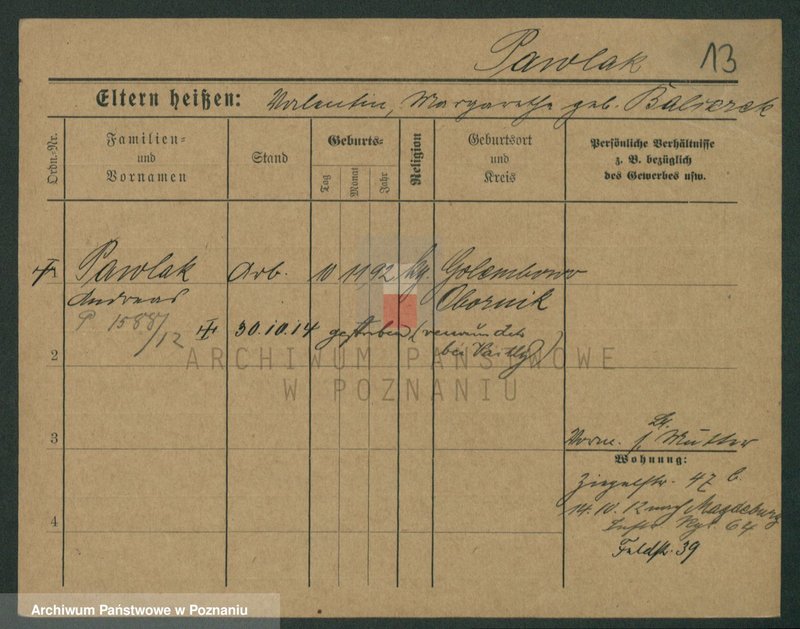 Pawlak 13
Eltern heißen: Valentin, Margarethe geb. Balierek
Ordn.-Nr.
Familien-
und
Vornamen
Stand
Geburts-
Tag
Monat
Jahr
Religion
Geburtsort
und
Kreis
Persönliche Verhältnisse
z. B. bezüglich
des Gewerbes usw.
Pawlak Arb. 10 11 92 kg. Golembowo
Andreas Obornik
P 1588/12
30.10.14 gestorben (verwundet
bei Vailly)
2
ARCHIWUM PAŃSTWOWE
W POZNANIU
3
Vorm. s. Mutter
Wohnung:
Ziegelstr. 47 b.
14.10.12 nach Magdeburg
4
Rgt. 64
Feldstr. 39
Archiwum Państwowe w Poznaniu